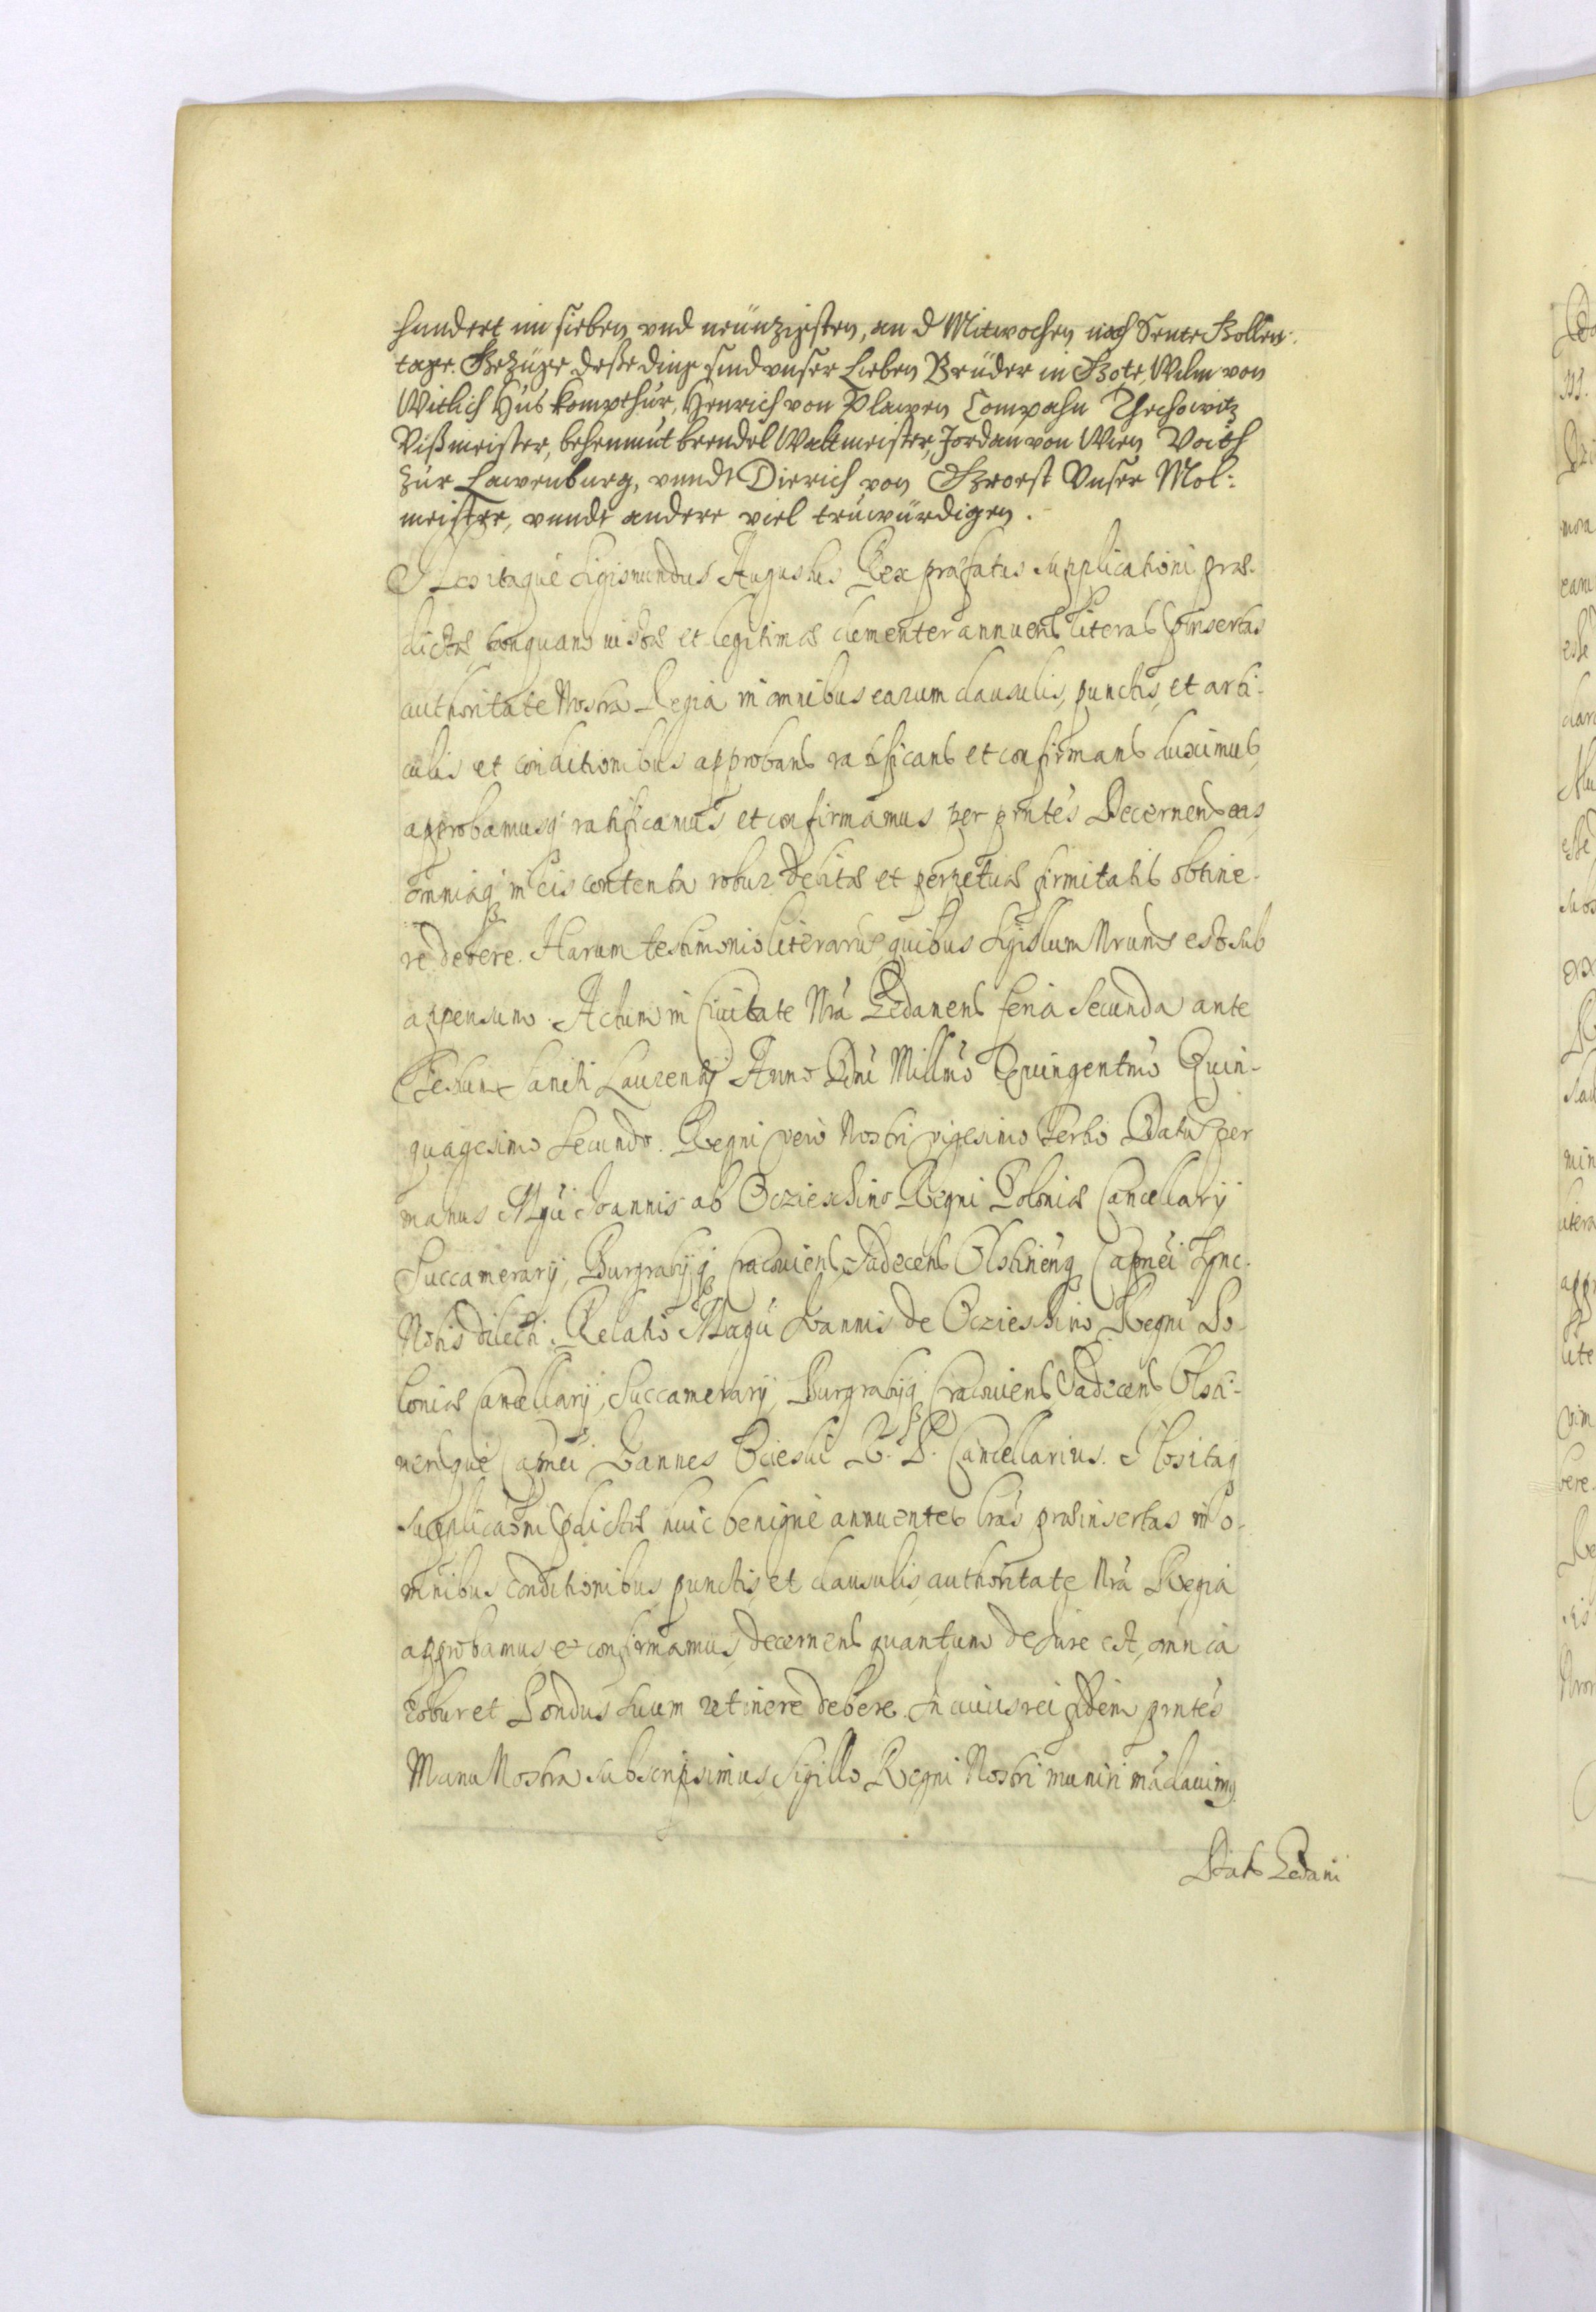 hundert im sieben und neunzigsten, an d Mitwochen nach Sente Gallen-
tage. Gezüge desse ding sind unser Lieben Brüder in Gote, Wilm von
Witlich Hus kompthur, Henrich von Plawen Compahn Thechowitz
Vißmeister, behenmut brendel Waltmeister, Jordan von Wien Voith
zur Lawenburg, unndt Dierich von Groest Unser Mol-
meister, unndt andere viel truwürdigen.
Nos itaque Sigismundus Augustus Rex præfatus supplicationi præ-
dictæ tanquam iustæ et legitimæ clementer annuens literas præinsertas
authoritate Nostra Regia in omnibus earum clausulis, punctis, et arti-
culis et conditionibus approbans ratificans et confirmans duximus,
approbamusq ratificamus et confirmamus per pntes Decernens eas
omniaq in eis contenta robur debitæ et perpetuæ firmitatis obtine-
re debere. Harum testimonio literarũ, quibus Sigillum Nrum est sub
appensum. Actum in Ciuitate Nrã Gedanens feria Secunda ante
Festum Sancti Laurentij Anno Dni Millmo Quingentmo Quin-
quagesimo Secundo. Regni vero Nostri vigesimo Tertio Datũ per
manus Mgci Joannis ab Oczieschino Regni Poloniæ Cancellarij
Succamerarij, Burgrabijq Cracouiens Sadecens Olstinenq Capnei Sync.
Nobis dilecti. Relatio Magci Joannis de Oczieschino Regni Po-
loniæ Cancellarij, Succamerarij, Burgrabijq Cracouiens Sadecens Olsti-
nensque Capnei Joannes Ocieski R. P. Cancellarius. Nos itaq
supplicaõni pdictæ huic benigne annuentes lrãs præinsertas in o-
mnibus conditionibus punctis, et clausulis, authoritate Nrã Regia
approbamus, et confirmamus, decernens quantum de Jure est, omnia
robur et Pondus suum retinere debere. In cuius rei fidem pntes
Manu Nostra subscripsimus, Sigillo Regni Nostri muniri mãdauimq
Datũ Gedani